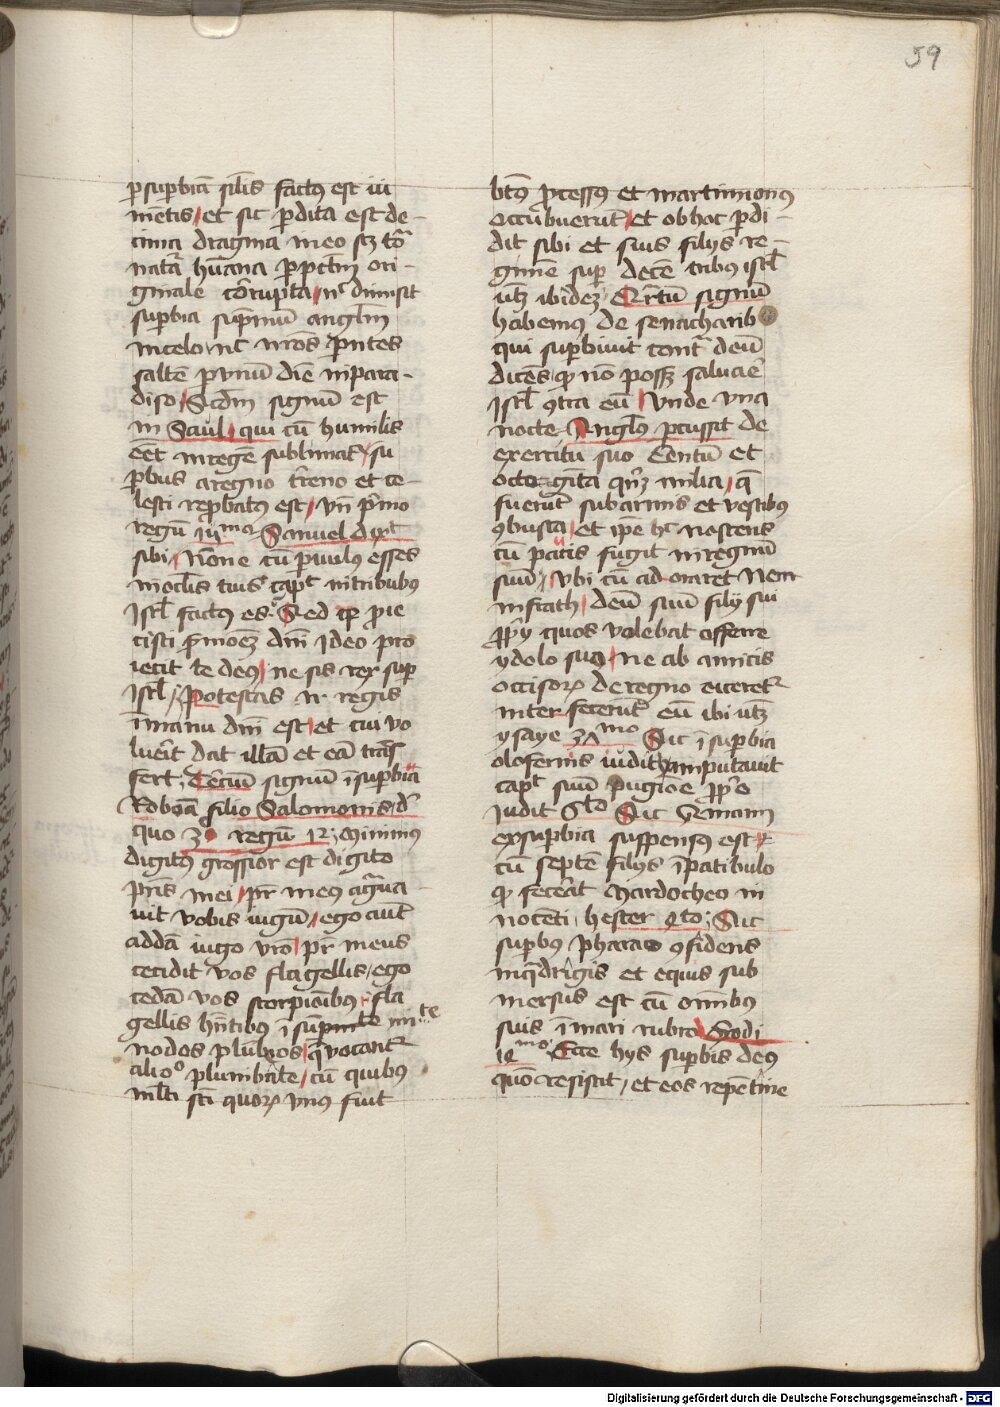 59
psuꝑbiā silis factꝰ est iu
mētis / et sic ꝑdita est de-
cima dragma meo scꝫ
natā hūana ori-
ginale corrupta / dimisit
suꝑbia supͥmū anglm̄
in celo nc nr̄os pͥntes
saltē ꝑ vnū diē in para-
diso / Scd̄m signū est
in Saul / qui cū humilis
eēt in regē sublimatꝰ / su
ꝑbus a regno t̄reno et ce-
lesti reꝓbatꝰ est / vn̄ pͥmo
regū Samuel dixit
sibi / Nōne cū ꝑuulus esses
in oclis tuis capt in tribubus
Isrl factꝰ es / Sed qꝛ ꝓie
cisti ẜmonē dn̄i Ideo pro
iecit te deꝯ / ne sis rex suꝑ
Isrl / Potestas regis
ī manu dn̄i est / et cui vo
luerit dat illā et eā trās
fert / Terciū signū ī suꝑbia
Roboā filio Salomonis d
quo 3º regū 12 / Minimus
digitꝯ grossior est digito
pr̄is mei / pr̄ meꝯ agͣua
uit vobis iugū / ego aūt
addā iugo vr̄o / pr̄ meus
cecidit vos flagellis / ego
cedā vos scorpioībus / fla
gellis hn̄tibus ī
nodos plūbeos / q̄ vocantᷣ
alio⁰ plumbate / cū quibꝯ
mlti sc̄i quorꝝ vnꝯ fuit
btꝯ ꝓcessꝯ et martinianus
occūbuerūt / et ob hoc ꝑdi-
dit sibi et suis filijs re-
gimē suꝑ decē tribus isrl
vt ibidē / Qr̄tū signū
habemꝯ de senacharib
qui suꝑbiuit cont͛ deū
dicēs ꝙ nō posset saluare
Isrl ꝯtra eū / Vnde vna
nocte Anglꝯ ꝑcussit de
exercitu suo Centū et
octogīta qn̄qꝫ milia / q̄
fuerūt sub armis et vestibus
ꝯbusta / et ipe nascens
cū paucis fugit in regnū
suū / Vbi cū adoraret Nem
in srath / deū suū filij sui
ꝓpͥj quos volebat offerre
ydolo suo / ne ab amicis
occisorꝝ de regno eiceretᷣ
interfecerūt eū ibi vt
ysaye 37mo Sic ī suꝑbia
olofernis iudith amputauit
capt suū pugioē ꝓpͥo
Judit Sic
ex suꝑbia suspensꝯ est /
cū septē filijs ī patibulo
ꝙ fecerat Mardocheo in
nocēti / hester / Sic
suꝑbꝯ pharao ꝯfidens
in q̄drigis et equis sub
mersus est cū om̄ibus
suis ī mari rubro / Exodi
14mo / Ecce hijs suꝑbis deꝯ
quō resistit / et eos repētine
Digitalisierung gefördert durch die Deutsche Forschungsgemeinschaft - DFG